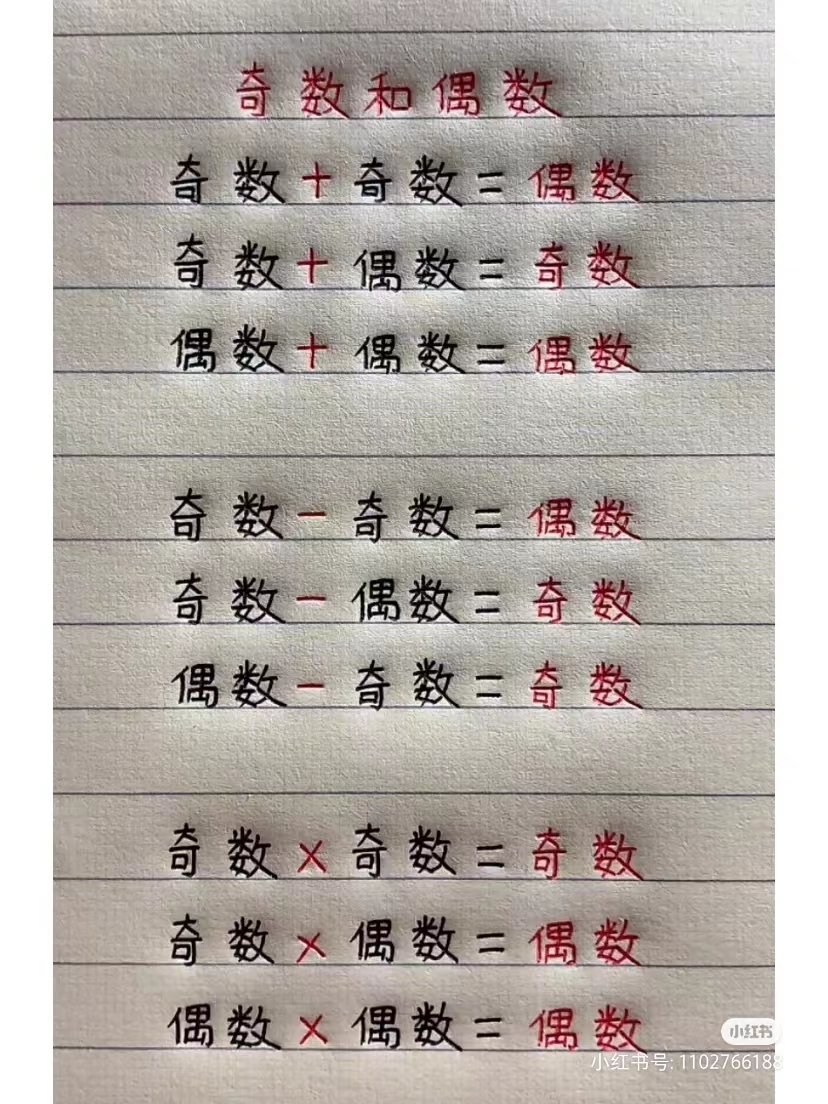 奇数和偶数
奇数+奇数=偶数
奇数+偶数=奇数
偶数+偶数=偶数
奇数-奇数=偶数
奇数-偶数=奇数
偶数-奇数=奇数
奇数×奇数=奇数
奇数×偶数=偶数
偶数×偶数=偶数
小红书
小红书号: 1102766188